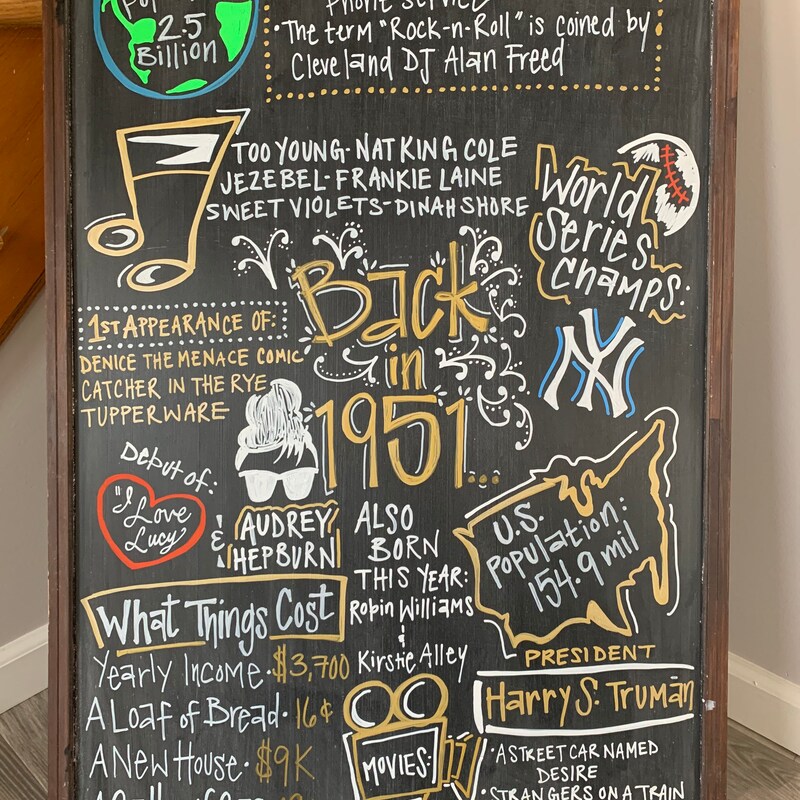 2.5
Billion
"The term "Rock-n-Roll" is coined by
Cleveland DJ Alan Freed
TOO YOUNG·NAT KING COLE
JEZEBEL-FRANKIE LAINE
SWEET VIOLETS-DINAH SHORE
World
Series
Champs:
NY
Back
in
1951...
1ST APPEARANCE OF:
DENICE THE MENACE COMIC
CATCHER IN THE RYE
TUPPERWARE
Debut of:
"I Love
Lucy"
&
AUDREY
HEPBURN
ALSO
BORN
THIS YEAR:
Robin Williams
&
Kirstie Alley
U.S.
Population:
154.9 mil
What Things Cost
Yearly Income·$3,700
A Loaf of Bread·16¢
A New House·$9K
PRESIDENT
Harry S. Truman
MOVIES:
·A STREET CAR NAMED
DESIRE
·STRANGERS ON A TRAIN